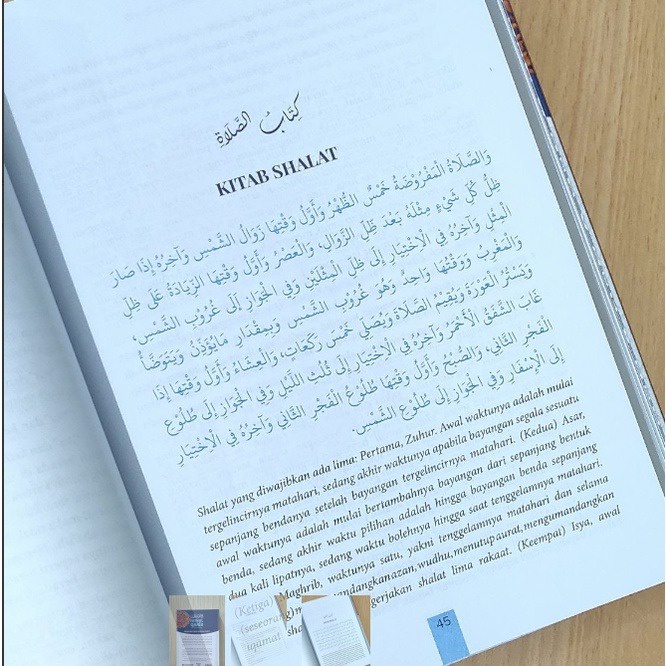 كِتَابُ الصَّلَاةِ
KITAB SHALAT
وَالصَّلَاةُ الْمَفْرُوْضَةُ خَمْسٌ الظُّهْرُ وَأَوَّلُ وَقْتِهَا زَوَالُ الشَّمْسِ وَآخِرُهُ إِذَا صَارَ
ظِلُّ كُلِّ شَيْءٍ مِثْلَهُ بَعْدَ ظِلِّ الزَّوَالِ، وَالْعَصْرُ وَأَوَّلُ وَقْتِهَا الزِّيَادَةُ عَلَى ظِلِّ
الْمِثْلِ وَآخِرُهُ فِي الْاِخْتِيَارِ إِلَى ظِلِّ الْمِثْلَيْنِ وَفِي الْجَوَازِ إِلَى غُرُوْبِ الشَّمْسِ،
وَالْمَغْرِبُ وَوَقْتُهَا وَاحِدٌ وَهُوَ غُرُوْبُ الشَّمْسِ وَبِمِقْدَارِ مَايُؤَذِّنُ وَيَتَوَضَّأُ
وَيَسْتُرُ الْعَوْرَةَ وَيُقِيْمُ الصَّلَاةَ وَيُصَلِّي خَمْسَ رَكَعَاتٍ، وَالْعِشَاءُ وَأَوَّلُ وَقْتِهَا إِذَا
غَابَ الشَّفَقُ الْأَحْمَرُ وَآخِرُهُ فِي الْاِخْتِيَارِ إِلَى ثُلُثِ اللَّيْلِ وَفِي الْجَوَازِ إِلَى طُلُوْعِ
الْفَجْرِ الثَّانِي، وَالصُّبْحُ وَأَوَّلُ وَقْتِهَا طُلُوْعُ الْفَجْرِ الثَّانِي وَآخِرُهُ فِي الْاِخْتِيَارِ
إِلَى الْإِسْفَارِ وَفِي الْجَوَازِ إِلَى طُلُوْعِ الشَّمْسِ.
Shalat yang diwajibkan ada lima: Pertama, Zuhur. Awal waktunya adalah mulai
tergelincirnya matahari, sedang akhir waktunya apabila bayangan segala sesuatu
sepanjang bendanya setelah bayangan tergelincirnya matahari. (Kedua) Asar,
awal waktunya adalah mulai bertambahnya bayangan dari sepanjang bentuk
benda, sedang akhir waktu pilihan adalah hingga bayangan benda sepanjang
dua kali lipatnya, sedang waktu bolehnya hingga saat tenggelamnya matahari.
(Ketiga) Maghrib, waktunya satu, yakni tenggelamnya matahari dan selama
(seseorang) mengumandangkan azan, wudhu, menutup aurat, mengumandangkan
iqamat gerjakan shalat lima rakaat. (Keempat) Isya, awal
45